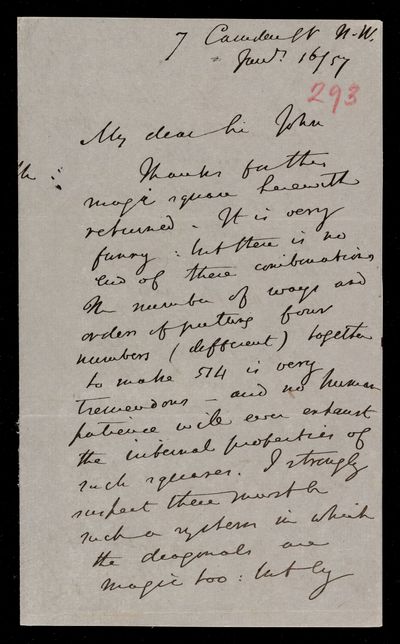 7 Camden St N.W.
Jany. 16/57
293
My dear Sir John
Thanks for the
magic square herewith
returned. It is very
funny: but there is no
end of these combinations
The number of ways and
orders of putting four
numbers (different) together
to make 514 is very
tremendous - and no human
patience will ever exhaust
the internal properties of
such squares. I strongly
suspect there must be
such a system in which
the diagonals are
magic too: but by